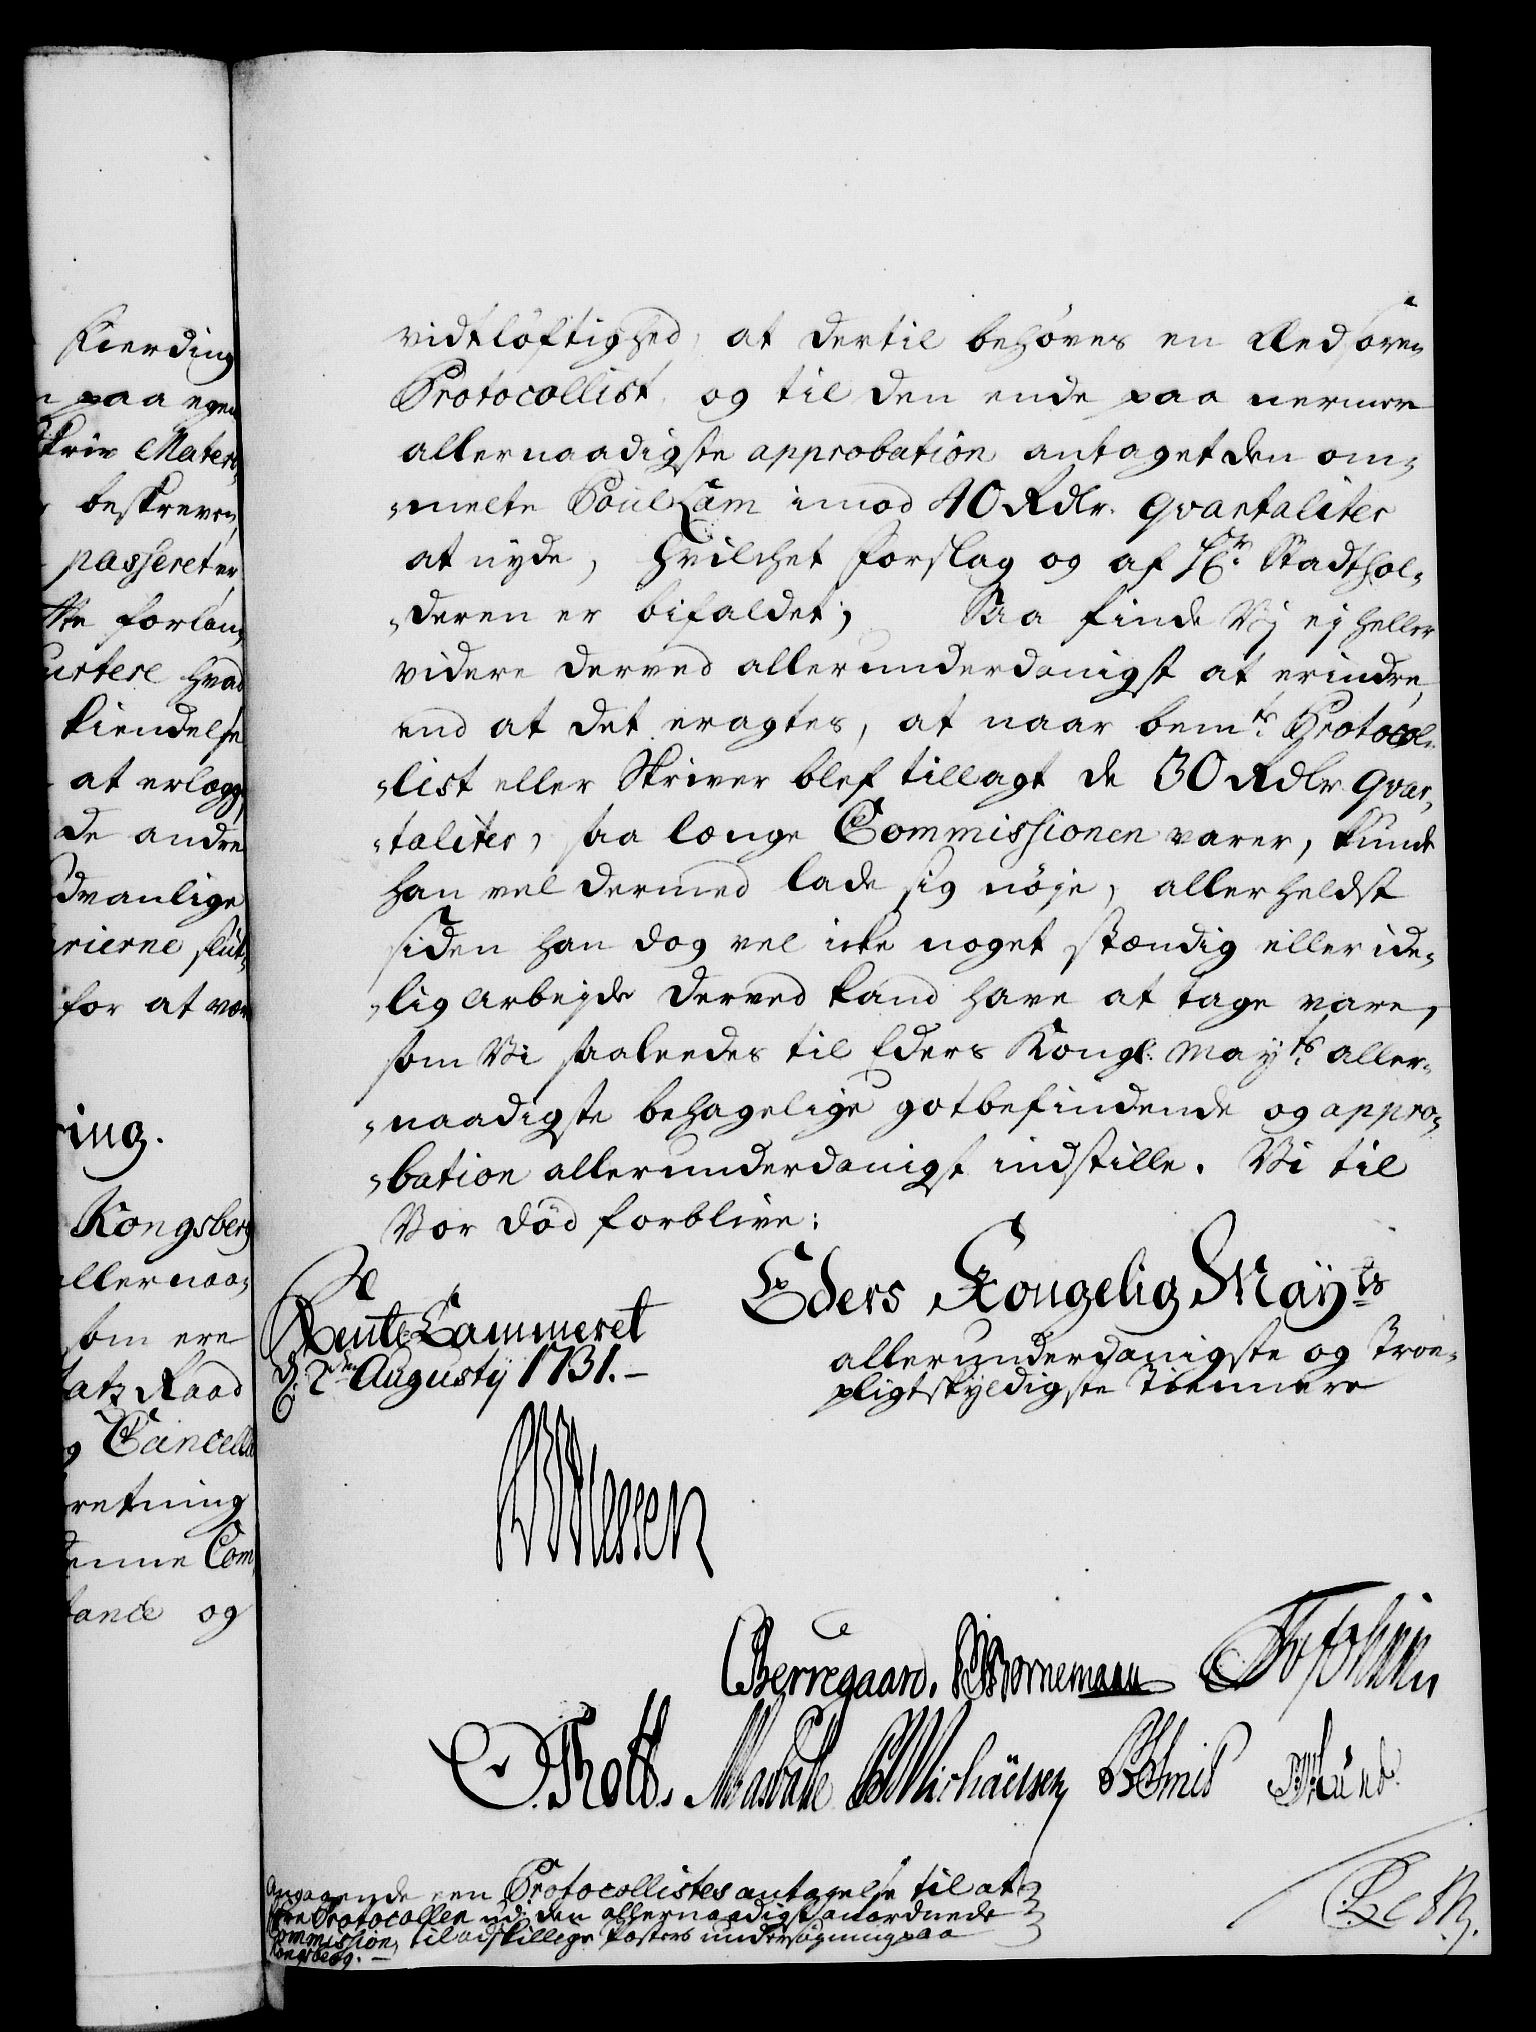 Kierding
paa egen
skriv Materi,
beskreven,
passeret er
forlan,
urtere hvad
kiendelse
at erlegg,
de andre
dvanlige
rierne slut,
for at vær
ring.
Kongsberg
allernaa,
som ere
tatz Raad
og Cancelli
retning
denne Com,
tance og
vidtløftighed, at dertil behøves en Edsoren
Protocollist, og til den ende paa nermere
allernaadigste approbation antaget den om,
„melte Poul Lam imod 40 Rdlr. qvartaliter
at nyde, hvilchet forslag og af Hr. Stadthol,
„deren er bifaldet; Saa finde Vj ej heller
videre derved allerunderdanigst at erindre,
end at det eragtes, at naar bemte Protocol,
„list eller Skriver blef tillagt de 30 Rdlr. qvar,
„taliter, saa længe Commissionen varer, kunde
han vel dermed lade sig nøje, allerheldst
siden han dog vel icke noget stændig eller ide,
„lig arbejde derved kand have at tage vare,
som Vi saaledes til Eders Kongl: Mayts aller,
„naadigste behagelige gotbefindende og appro,
„bation allerunderdanigst indstille. Vi til
Vor død forblive:
Eders Kongelig Mayts
allerunderdanigste og Troe,
pligtskyldigste Tiennere
Rente Cammeret
d: 2den Augustij 1731.
Berregaard. Bornemann
Thott. Michäelsen
Angaaende een Protocollistes antagelse til at
føre Protocollen udi den allernaadigst anordnede
Commission, til adskillige Posters undersøgning paa
Kongsberg.